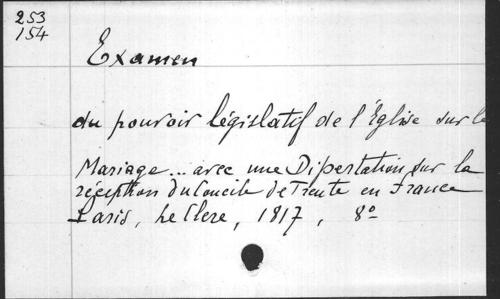 253
154
Examen
du pouvoir législatif de l'Église sur le
Mariage... avec une Dissertation sur la
réception du Concile de Trente en France
Paris, Le Clere, 1817, 8º